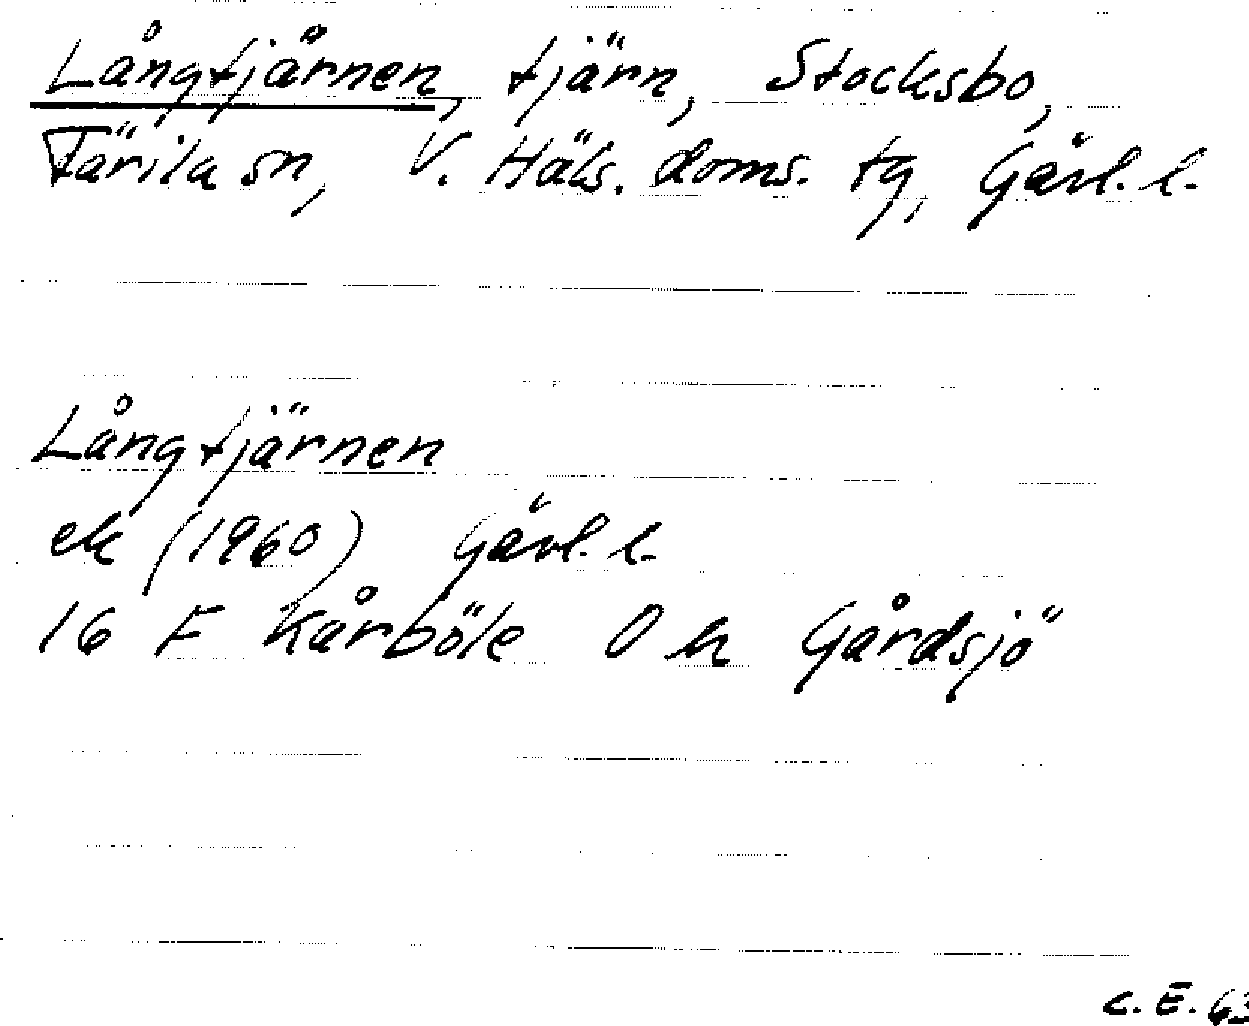 Långtjärnen, tjärn, Stocksbo,
Färila sn, V. Häls. doms. tg, Gävl. l.
Långtjärnen
ek (1960) Gävl. l.
16 F Kårböle O h Gårdsjö
C. E. 63